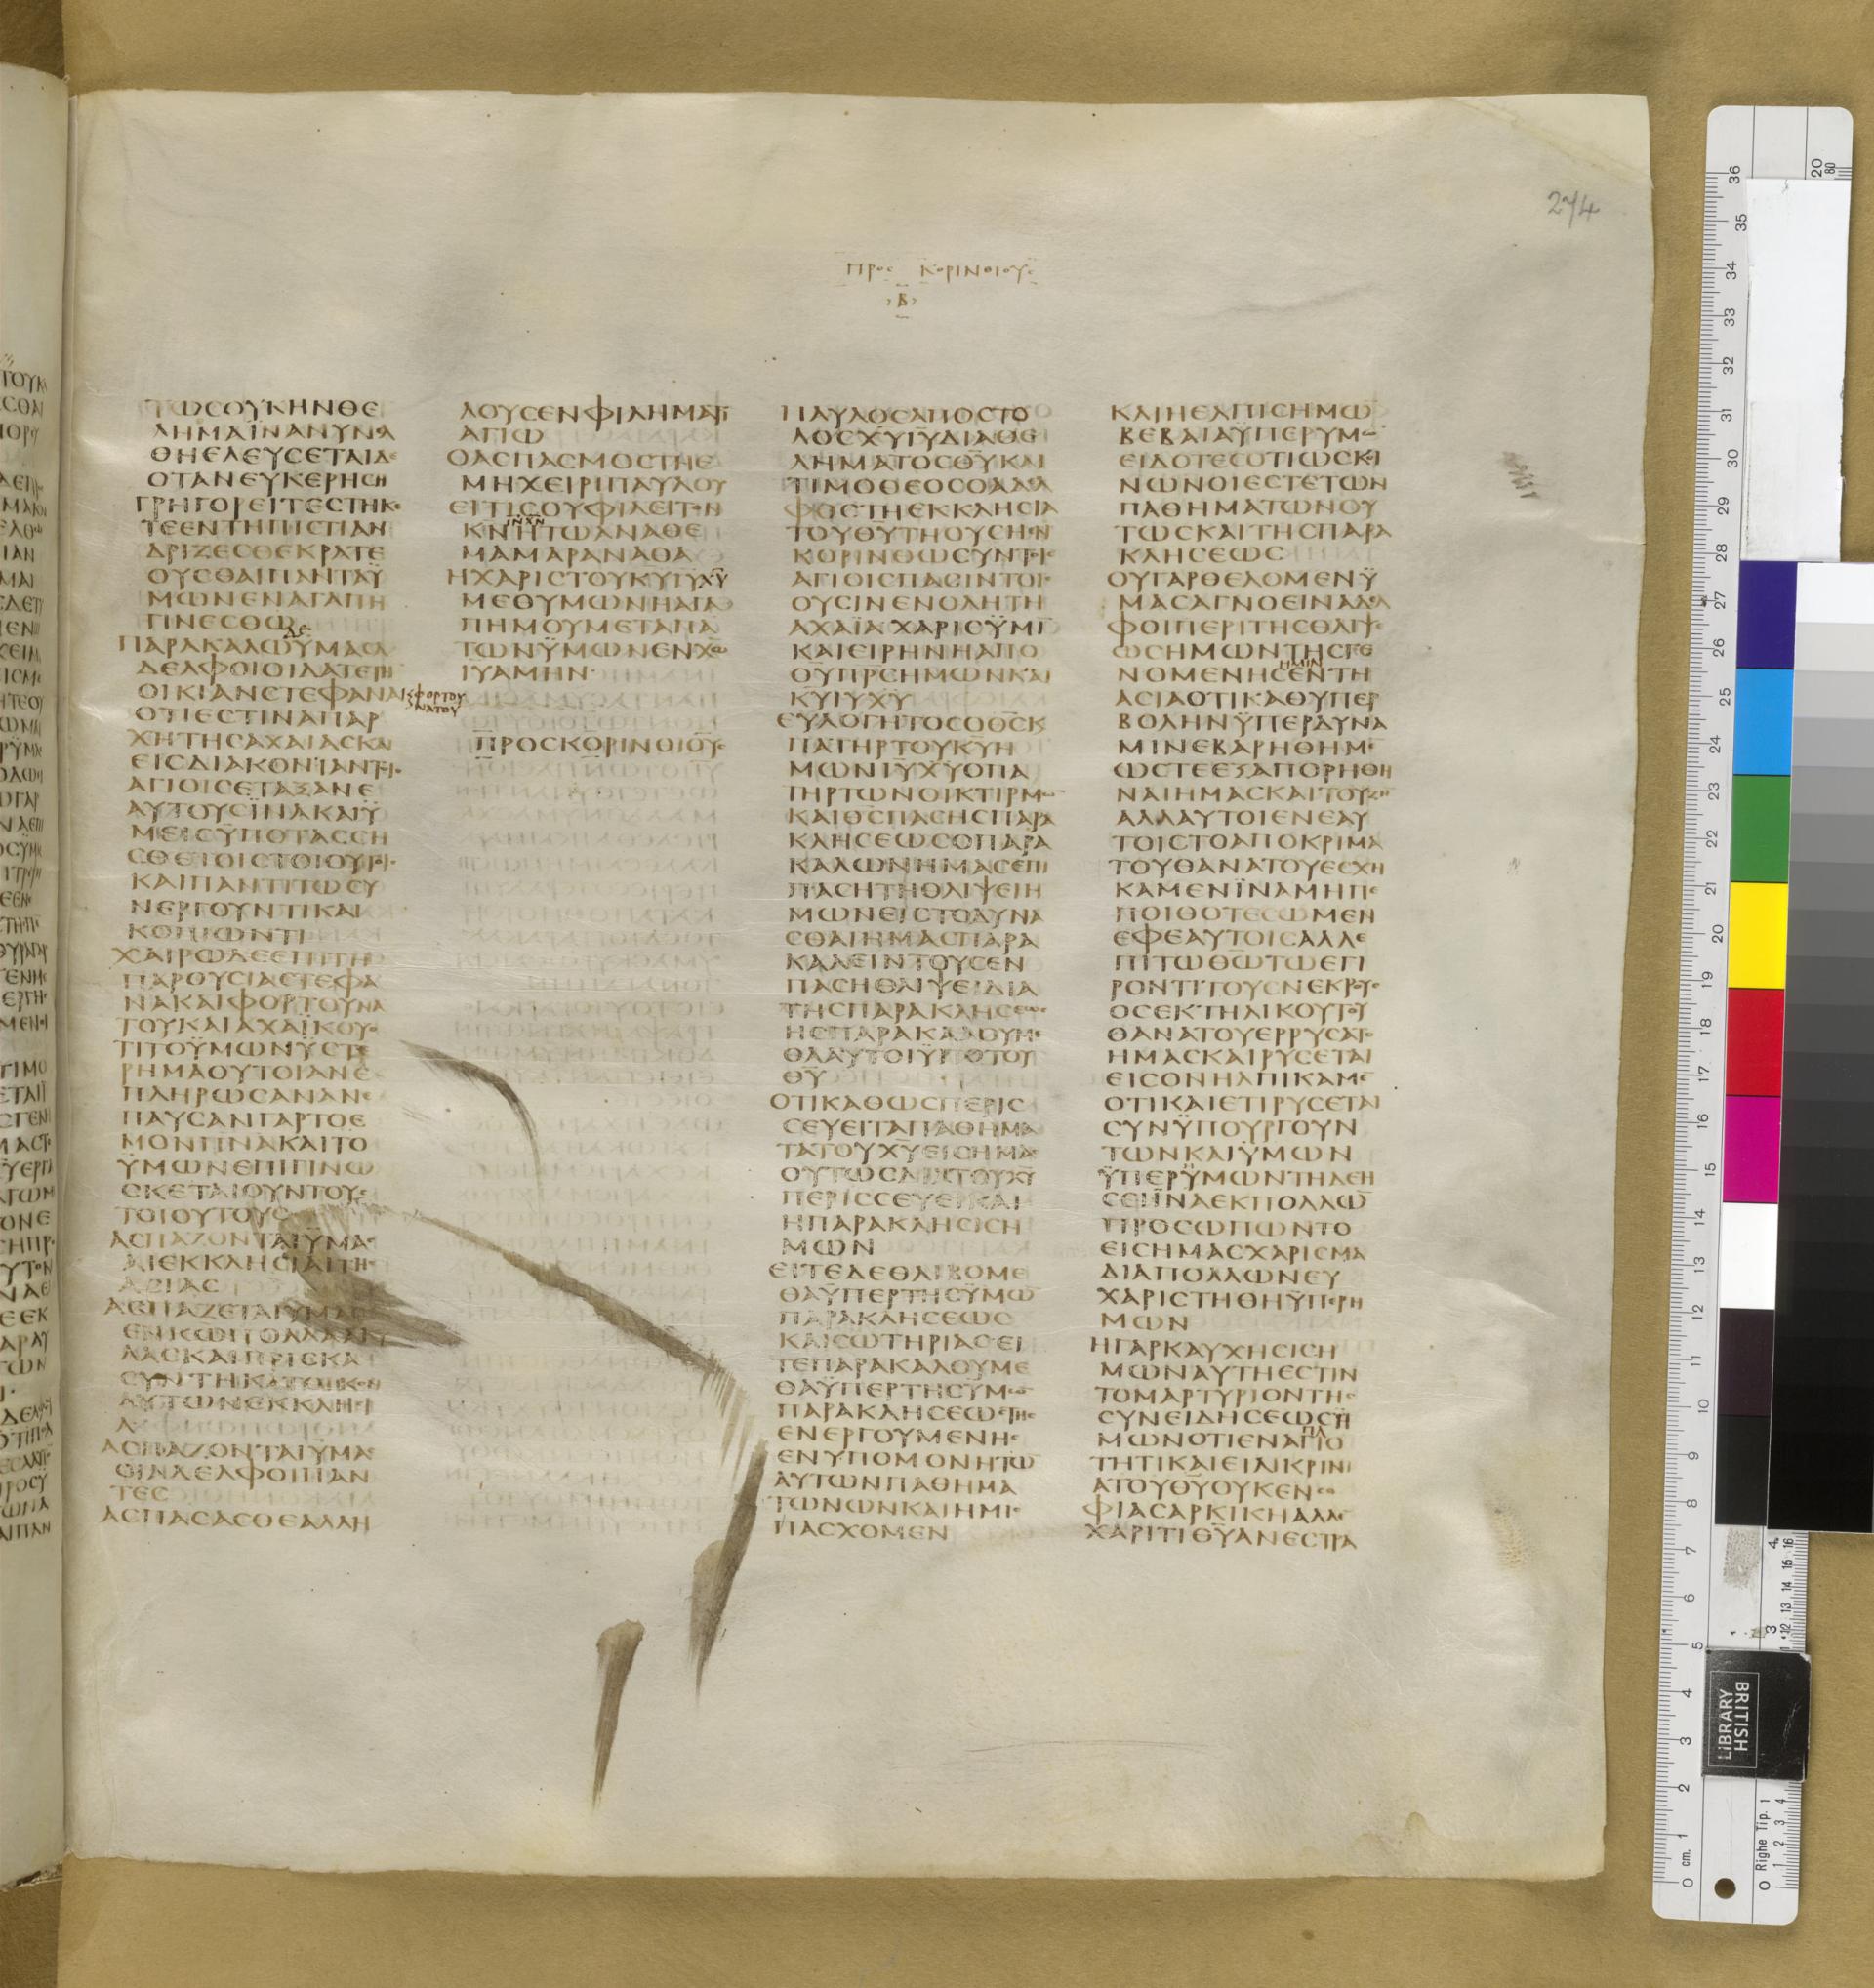 274
ΠΡΟΣ ΚΟΡΙΝΘΙΟΥΣ
Β
ΤΩϹΟΥΚΗΝΘΕ
ΛΗΜΑΪΝΑΝΥΝΕΛ
ΘΗΕΛΕΥϹΕΤΑΙΔΕ
ΟΤΑΝΕΥΚΕΡΗϹΗ
ΓΡΗΓΟΡΕΙΤΕϹΤΗΚΕ
ΤΕΕΝΤΗΠΙϹΤΙΑΝ
ΔΡΙΖΕϹΘΕΚΡΑΤΕ
ΟΥϹΘΑΙΠΑΝΤΑΫ
ΜΩΝΕΝΑΓΑΠΗ
ΓΙΝΕϹΘΩ
ΔΕ
ΠΑΡΑΚΑΛΩΫΜΑϹΑ
ΔΕΛΦΟΙΟΙΔΑΤΕΤΗ
ΟΙΚΙΑΝϹΤΕΦΑΝΑ
ΚΑΙ ΦΟΡΤΟΥ
ΝΑΤΟΥ
ΟΤΙΕϹΤΙΝΑΠΑΡ
ΧΗΤΗϹΑΧΑΙΑϹΚΑΙ
ΕΙϹΔΙΑΚΟΝΙΑΝΤΟΙϹ
ΑΓΙΟΙϹΕΤΑΞΑΝΕ
ΑΥΤΟΥϹΪΝΑΚΑΙΫ
ΜΕΙϹΫΠΟΤΑϹϹΗ
ϹΘΕΤΟΙϹΤΟΙΟΥΤΟΙϹ
ΚΑΙΠΑΝΤΙΤΩϹΥ
ΝΕΡΓΟΥΝΤΙΚΑΙ
ΚΟΠΙΩΝΤΙ
ΧΑΙΡΩΔΕΕΠΙΤΗ
ΠΑΡΟΥϹΙΑϹΤΕΦΑ
ΝΑΚΑΙΦΟΡΤΟΥΝΑ
ΤΟΥΚΑΙΑΧΑΪΚΟΥΟ
ΤΙΤΟΫΜΩΝΫϹΤΕ
ΡΗΜΑΟΥΤΟΙΑΝΕ
ΠΛΗΡΩϹΑΝΑΝΕ
ΠΑΥϹΑΝΓΑΡΤΟΕ
ΜΟΝΠΝΑΚΑΙΤΟ
ΫΜΩΝΕΠΙΓΙΝΩ
ϹΚΕΤΑΙΟΥΝΤΟΥϹ
ΤΟΙΟΥΤΟΥϹ
ΑϹΠΑΖΟΝΤΑΙΫΜΑϹ
ΑΙΕΚΚΛΗϹΙΑΙΤΗϹ
ΑϹΙΑϹ
ΑϹΠΑΖΕΤΑΙΫΜΑϹ
ΕΝΚΩΠΟΛΛΑΑΚΥ
ΛΑϹΚΑΙΠΡΙϹΚΑ
ϹΥΝΤΗΚΑΤΟΙΚΟΝ
ΑΥΤΩΝΕΚΚΛΗϹΙ
Α
ΑϹΠΑΖΟΝΤΑΙΫΜΑϹ
ΟΙΑΔΕΛΦΟΙΠΑΝ
ΤΕϹ
ΑϹΠΑϹΑϹΘΕΑΛΛΗ
ΛΟΥϹΕΝΦΙΛΗΜΑΤΙ
ΑΓΙΩ
ΟΑϹΠΑϹΜΟϹΤΗΕ
ΜΗΧΕΙΡΙΠΑΥΛΟΥ
ΕΙΤΙϹΟΥΦΙΛΕΙΤΟΝ
ΙΝΧΝ
ΚΝΗΤΩΑΝΑΘΕ
ΜΑΜΑΡΑΝΑΘΑ
ΗΧΑΡΙϹΤΟΥΚΥΙΥΧΥ
ΜΕΘΥΜΩΝΗΑΓΑ
ΠΗΜΟΥΜΕΤΑΠΑ
ΤΩΝΫΜΩΝΕΝΧΩ
ΙΥΑΜΗΝ
ΠΡΟϹΚΟΡΙΝΘΙΟΥϹ
ΠΑΥΛΟϹΑΠΟϹΤΟ
ΛΟϹΧΥΙΥΔΙΑΘΕ
ΛΗΜΑΤΟϹΘΥΚΑΙ
ΤΙΜΟΘΕΟϹΟΑΔΕΛ
ΦΟϹΤΗΕΚΚΛΗϹΙΑ
ΤΟΥΘΥΤΗΟΥϹΗΕΝ
ΚΟΡΙΝΘΩϹΥΝΤΟΙϹ
ΑΓΙΟΙϹΠΑϹΙΝΤΟΙϹ
ΟΥϹΙΝΕΝΟΛΗΤΗ
ΑΧΑΪΑΧΑΡΙϹΫΜΙ
ΚΑΙΕΙΡΗΝΗΑΠΟ
ΘΥΠΡϹΗΜΩΝΚΑΙ
ΚΥΙΥΧΥ
ΕΥΛΟΓΗΤΟϹΟΘϹΚ
ΠΑΤΗΡΤΟΥΚΥΗ
ΜΩΝΙΥΧΥΟΠΑ
ΤΗΡΤΩΝΟΙΚΤΙΡΜΩ
ΚΑΙΘϹΠΑϹΗϹΠΑΡΑ
ΚΛΗϹΕΩϹΟΠΑΡΑ
ΚΑΛΩΝΗΜΑϹΕΠΙ
ΠΑϹΗΤΗΘΛΙΨΕΙΗ
ΜΩΝΕΙϹΤΟΔΥΝΑ
ϹΘΑΙΗΜΑϹΠΑΡΑ
ΚΑΛΕΙΝΤΟΥϹΕΝ
ΠΑϹΗΘΛΙΨΕΙΔΙΑ
ΤΗϹΠΑΡΑΚΛΗϹΕΩϹ
ΗϹΠΑΡΑΚΑΛΟΥΜΕ
ΘΑΑΥΤΟΙΫΠΟΤΟΥ
ΘΥ
ΟΤΙΚΑΘΩϹΠΕΡΙϹ
ϹΕΥΕΙΤΑΠΑΘΗΜΑ
ΤΑΤΟΥΧΥΕΙϹΗΜΑϹ
ΟΥΤΩϹΔΙΑΤΟΥΧΥ
ΠΕΡΙϹϹΕΥΕΙΚΑΙ
ΗΠΑΡΑΚΛΗϹΙϹΗ
ΜΩΝ
ΕΙΤΕΔΕΘΛΙΒΟΜΕ
ΘΑΫΠΕΡΤΗϹΫΜΩ
ΠΑΡΑΚΛΗϹΕΩϹ
ΚΑΙϹΩΤΗΡΙΑϹΕΙ
ΤΕΠΑΡΑΚΑΛΟΥΜΕ
ΘΑΫΠΕΡΤΗϹΫΜΩ
ΠΑΡΑΚΛΗϹΕΩϹΤΗϹ
ΕΝΕΡΓΟΥΜΕΝΗϹ
ΕΝΥΠΟΜΟΝΗΤΩ
ΑΥΤΩΝΠΑΘΗΜΑ
ΤΩΝΩΝΚΑΙΗΜΙϹ
ΠΑϹΧΟΜΕΝ
ΚΑΙΗΕΛΠΙϹΗΜΩ
ΒΕΒΑΙΑΫΠΕΡΥΜΩ
ΕΙΔΟΤΕϹΟΤΙΩϹΚΟΙ
ΝΩΝΟΙΕϹΤΕΤΩΝ
ΠΑΘΗΜΑΤΩΝΟΥ
ΤΩϹΚΑΙΤΗϹΠΑΡΑ
ΚΛΗϹΕΩϹ
ΟΥΓΑΡΘΕΛΟΜΕΝΫ
ΜΑϹΑΓΝΟΕΙΝΑΔΕΛ
ΦΟΙΠΕΡΙΤΗϹΘΛΙΨΕ
ΩϹΗΜΩΝΤΗϹΓΕ
ΗΜΙΝ
ΝΟΜΕΝΗϹΕΝΤΗ
ΑϹΙΑΟΤΙΚΑΘΥΠΕΡ
ΒΟΛΗΝΫΠΕΡΔΥΝΑ
ΜΙΝΕΒΑΡΗΘΗΜΕ
ΩϹΤΕΕΞΑΠΟΡΗΘΗ
ΝΑΙΗΜΑϹΚΑΙΤΟΥΖΗ
ΑΛΛΑΑΥΤΟΙΕΝΕΑΥ
ΤΟΙϹΤΟΑΠΟΚΡΙΜΑ
ΤΟΥΘΑΝΑΤΟΥΕϹΧΗ
ΚΑΜΕΝΪΝΑΜΗΠΕ
ΠΟΙΘΟΤΕϹΩΜΕΝ
ΕΦΕΑΥΤΟΙϹΑΛΛΕ
ΠΙΤΩΘΩΤΩΕΓΙ
ΡΟΝΤΙΤΟΥϹΝΕΚΡΟΥϹ
ΟϹΕΚΤΗΛΙΚΟΥΤΟΥ
ΘΑΝΑΤΟΥΕΡΡΥϹΑΤΟ
ΗΜΑϹΚΑΙΡΥϹΕΤΑΙ
ΕΙϹΟΝΗΛΠΙΚΑΜΕ
ΟΤΙΚΑΙΕΤΙΡΥϹΕΤΑΙ
ϹΥΝΫΠΟΥΡΓΟΥΝ
ΤΩΝΚΑΙΫΜΩΝ
ΫΠΕΡΫΜΩΝΤΗΔΕΗ
ϹΕΙΪΝΑΕΚΠΟΛΛΩ
ΠΡΟϹΩΠΩΝΤΟ
ΕΙϹΗΜΑϹΧΑΡΙϹΜΑ
ΔΙΑΠΟΛΛΩΝΕΥ
ΧΑΡΙϹΤΗΘΗΫΠΕΡΗ
ΜΩΝ
ΗΓΑΡΚΑΥΧΗϹΙϹΗ
ΜΩΝΑΥΤΗΕϹΤΙΝ
ΤΟΜΑΡΤΥΡΙΟΝΤΗϹ
ϹΥΝΕΙΔΗϹΕΩϹΗ
ΠΛ
ΜΩΝΟΤΙΕΝΑΓΙΟ
ΤΗΤΙΚΑΙΕΙΛΙΚΡΙΝΙ
ΑΤΟΥΘΥΟΥΚΕΝϹΟ
ΦΙΑϹΑΡΚΙΚΗΑΛΛΕ
ΧΑΡΙΤΙΘΥΑΝΕϹΤΡΑ
BRITISH
LIBRARY
0 Righe Tip. 1